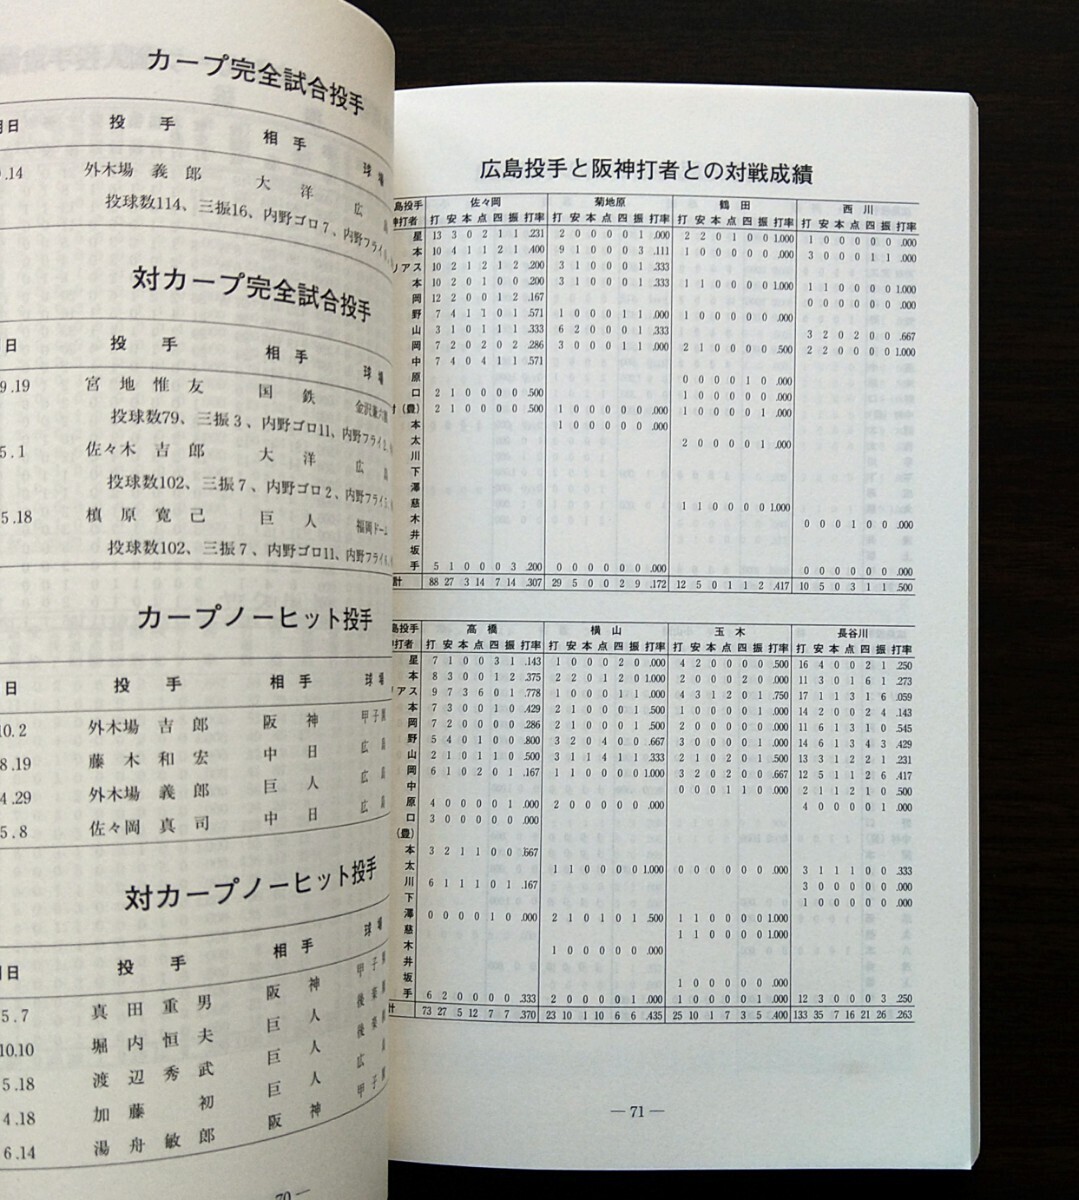 カープ完全試合投手
月日 投手 相手 球場
.14 外木場 義郎 大洋 広島
投球数114、三振16、内野ゴロ7、内野フライ
対カープ完全試合投手
日 投手 相手 球場
9.19 宮地 惟友 国鉄 金沢兼六園
投球数79、三振3、内野ゴロ11、内野フライ
5.1 佐々木 吉郎 大洋 広島
投球数102、三振7、内野ゴロ2、内野フライ
5.18 槙原 寛己 巨人 福岡ドーム
投球数102、三振7、内野ゴロ11、内野フライ
カープノーヒット投手
日 投手 相手 球場
10.2 外木場 吉郎 阪神 甲子園
8.19 藤本 和宏 中日 広島
4.29 外木場 義郎 巨人 広島
5.8 佐々岡 真司 中日 広島
対カープノーヒット投手
月日 投手 相手 球場
5.7 真田 重男 阪神 甲子園
10.10 堀内 恒夫 巨人 後楽園
5.18 渡辺 秀武 巨人 後楽園
4.18 加藤 初 巨人 広島
6.14 湯舟 敏郎 阪神 甲子園
70 —
広島投手と阪神打者との対戦成績
島投手 佐々岡 菊地原 鶴田 西川
神打者 打安本点四振打率 打安本点四振打率 打安本点四振打率 打安本点四振打率
星 13 3 0 2 1 1 .231 2 0 0 0 0 1 .000 2 2 0 1 0 0 1.000 1 0 0 0 0 0 .000
本 10 4 1 1 2 1 .400 9 1 0 0 0 3 .111 1 0 0 0 0 0 .000 3 0 0 0 1 1 .000
リアス 10 2 1 2 1 2 .200 3 1 0 0 0 1 .333
本 10 2 0 1 0 0 .200 3 1 0 0 0 1 .333 1 1 0 0 0 0 1.000 1 1 0 0 0 0 1.000
岡 12 2 0 0 1 2 .167 0 0 0 0 0 0 .000
野 7 4 1 1 0 1 .571 1 0 0 0 1 1 .000 1 0 0 0 0 0 .000
山 3 1 0 1 1 1 .333 6 2 0 0 0 1 .333 3 2 0 2 0 0 .667
岡 7 2 0 2 0 2 .286 3 0 0 0 1 1 .000 2 1 0 0 0 0 .500 2 2 0 0 0 0 1.000
中 7 4 0 4 1 1 .571
原 0 0 0 0 1 0 .000
口 2 1 0 0 0 0 .500 1 0 0 0 0 0 .000
(豊) 2 1 0 0 0 0 .500 1 0 0 0 0 0 .000 1 0 0 0 0 1 .000
本 1 0 0 0 0 0 .000
太 2 0 0 0 0 1 .000
川
下
澤
慈 1 1 0 0 0 0 1.000
木 0 0 0 1 0 0 .000
井
坂
手 5 1 0 0 0 3 .200 0 0 0 0 0 0 .000 0 0 0 0 0 0 .000
計 88 27 3 14 7 14 .307 29 5 0 0 2 9 .172 12 5 0 1 1 2 .417 10 5 0 3 1 1 .500
島投手 高橋 横山 玉木 長谷川
神打者 打安本点四振打率 打安本点四振打率 打安本点四振打率 打安本点四振打率
星 7 1 0 0 3 1 .143 1 0 0 0 2 0 .000 4 2 0 0 0 0 .500 16 4 0 0 2 1 .250
本 8 3 0 0 1 2 .375 2 2 0 1 2 0 1.000 2 0 0 0 2 0 .000 11 3 0 1 6 1 .273
リアス 9 7 3 6 0 1 .778 1 0 0 0 1 1 .000 4 3 1 2 0 1 .750 17 1 1 3 1 6 .059
本 7 3 0 0 1 0 .429 2 1 0 0 0 1 .500 1 0 0 0 0 1 .000 14 2 0 0 2 4 .143
岡 7 2 0 0 0 0 .286 2 1 0 0 1 1 .500 2 0 0 0 0 0 .000 11 6 1 3 1 0 .545
野 5 4 0 1 0 0 .800 3 2 0 4 0 0 .667 3 0 0 0 0 1 .000 14 6 1 3 4 3 .429
山 2 1 0 1 1 0 .500 3 1 1 4 1 1 .333 2 1 0 2 0 1 .500 13 3 1 2 2 1 .231
岡 6 1 0 2 0 1 .167 1 1 0 0 0 0 1.000 3 2 0 2 0 0 .667 12 5 1 1 2 6 .417
中 0 0 0 1 1 0 .000 2 1 1 2 1 0 .500
原 4 0 0 0 0 1 .000 2 0 0 0 0 0 .000 4 0 0 0 0 1 .000
口 3 0 0 0 0 0 .000
(豊)
本 3 2 1 1 0 0 .667
太 1 1 0 0 0 0 1.000 0 0 0 0 0 0 .000 3 1 1 1 0 0 .333
川 6 1 1 1 0 1 .167 3 0 0 0 0 0 .000
下 1 0 0 0 0 0 .000
澤 0 0 0 0 1 0 .000 2 1 0 1 0 1 .500 1 1 0 0 0 0 1.000
慈 1 1 0 0 0 0 1.000
木 1 0 0 0 0 0 .000
井
坂 1 0 0 0 0 0 .000
手 6 2 0 0 0 0 .333 2 0 0 0 0 1 .000 1 0 0 0 0 1 .000 12 3 0 0 0 3 .250
計 73 27 5 12 7 7 .370 23 10 1 10 6 6 .435 25 10 1 7 3 5 .400 133 35 7 16 21 26 .263
— 71 —